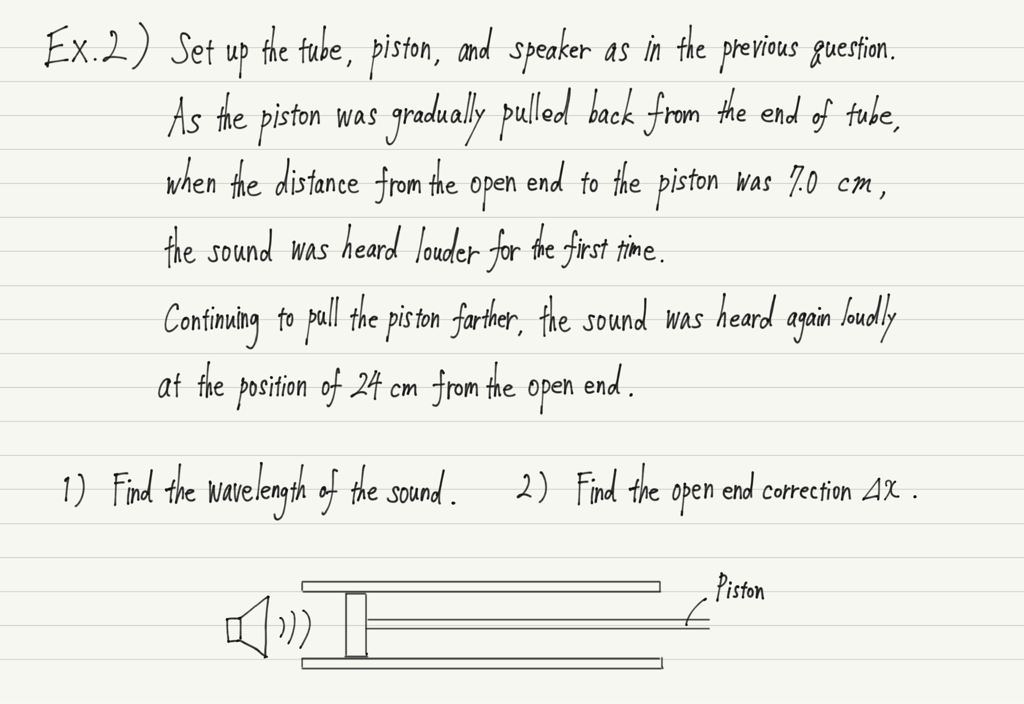 Ex.2) Set up the tube, piston, and speaker as in the previous question.
As the piston was gradually pulled back from the end of tube,
when the distance from the open end to the piston was 7.0 cm,
the sound was heard louder for the first time.
Continuing to pull the piston farther, the sound was heard again loudly
at the position of 24 cm from the open end.
1) Find the wavelength of the sound. 2) Find the open end correction Δx.
Piston